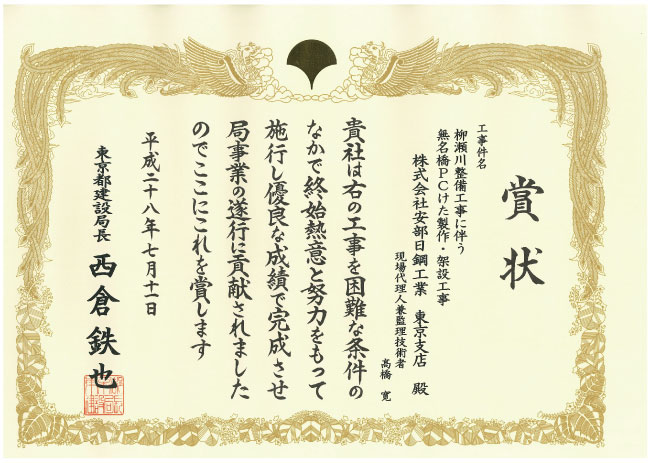 賞状
工事件名
柳瀬川整備工事に伴う
無名橋PCけた製作・架設工事
株式会社安部日鋼工業 東京支店 殿
現場代理人兼監理技術者
高橋 寛
貴社は右の工事を困難な条件の
なかで終始熱意と努力をもって
施行し優良な成績で完成させ
局事業の遂行に貢献されました
のでここにこれを賞します
平成二十八年七月十一日
東京都建設局長 西倉鉄也